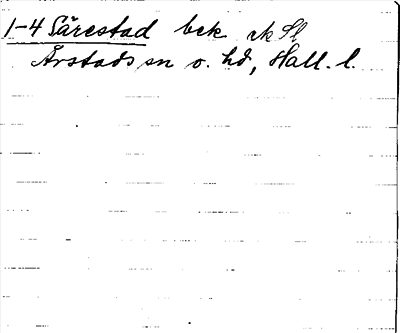 1-4 Särestad bek ek Sl
Årstads sn o. hd, Hall. l.